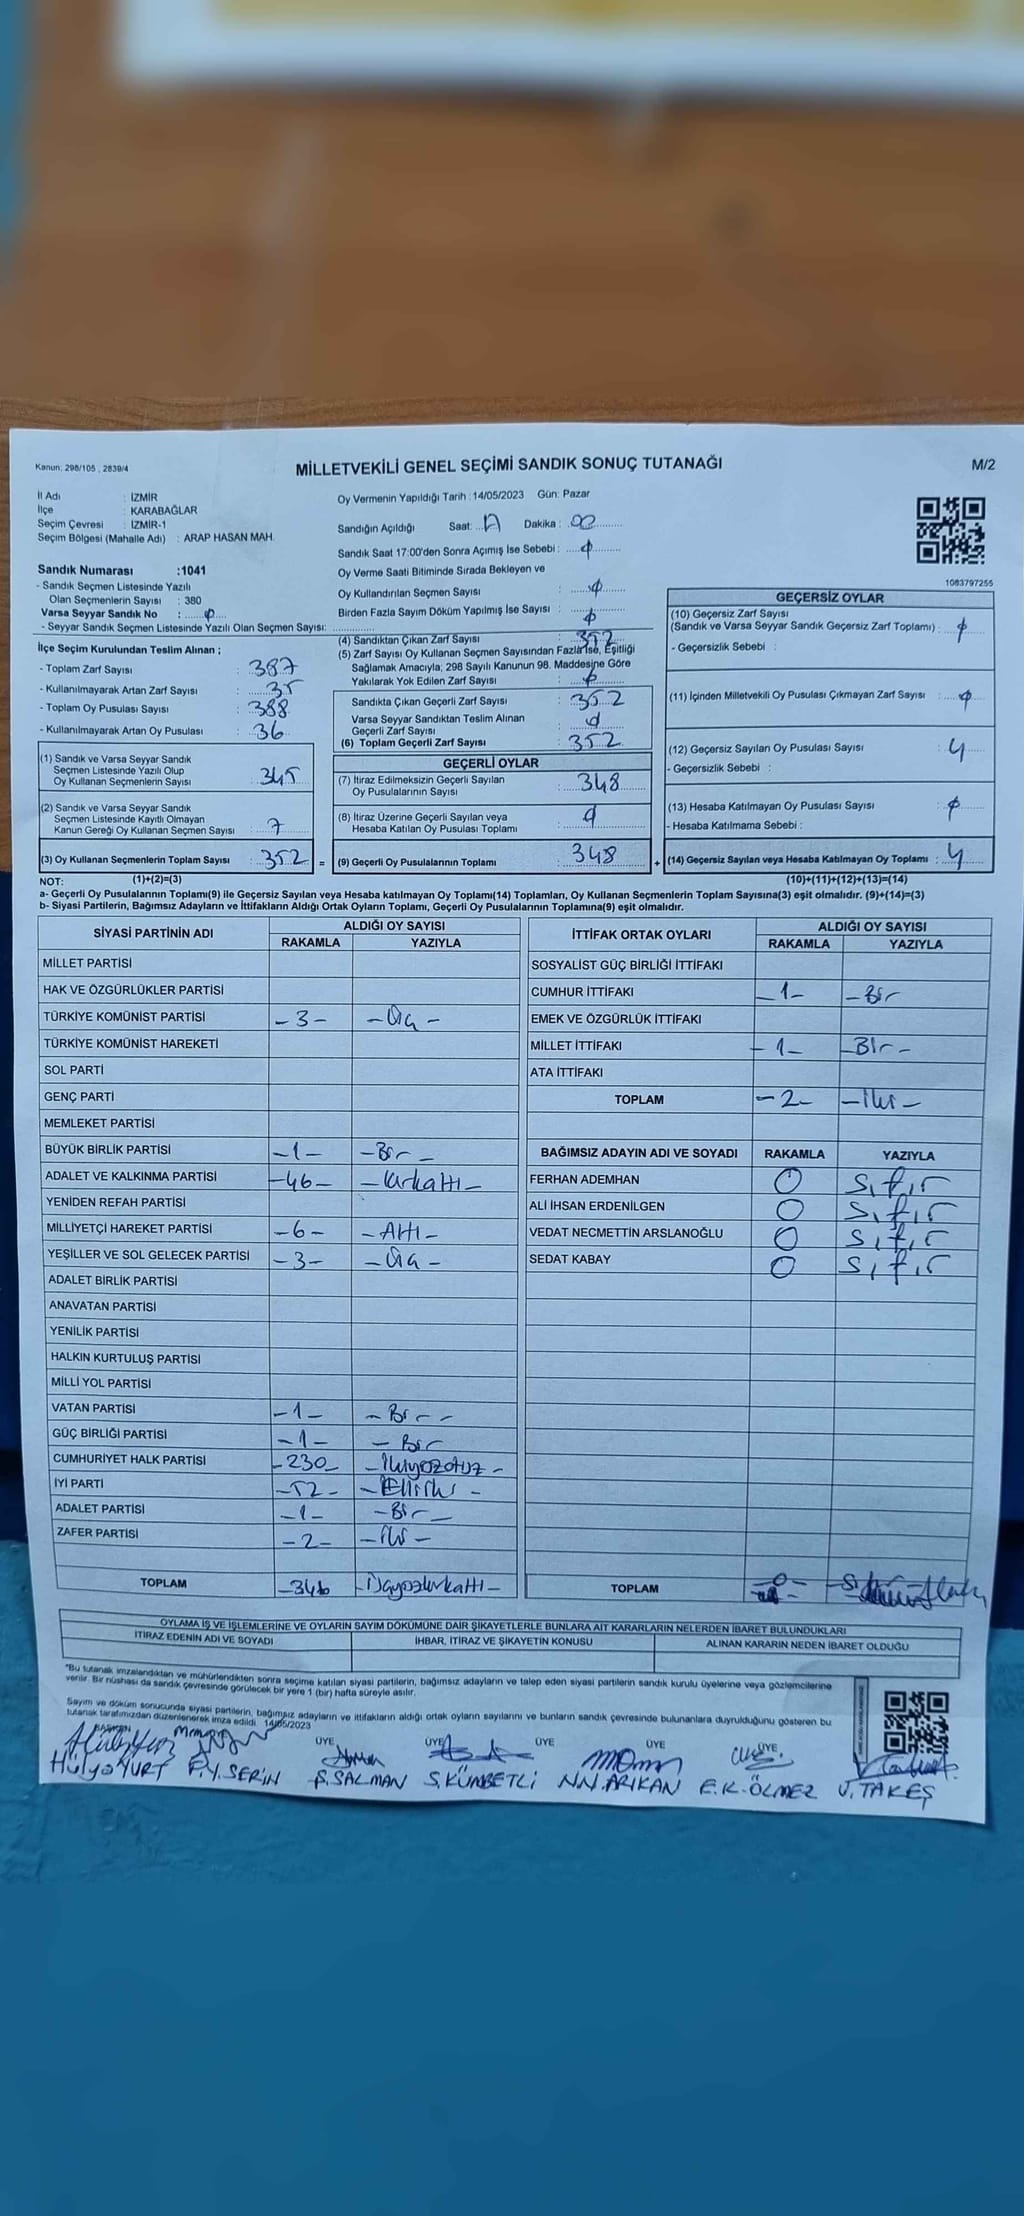 Kanun: 298/105 , 2839/4
MİLLETVEKİLİ GENEL SEÇİMİ SANDIK SONUÇ TUTANAĞI
M/2
İl Adı : İZMİR
İlçe : KARABAĞLAR
Seçim Çevresi : İZMİR-1
Seçim Bölgesi (Mahalle Adı) : ARAP HASAN MAH.
Sandık Numarası :1041
- Sandık Seçmen Listesinde Yazılı
Olan Seçmenlerin Sayısı : 380
Varsa Seyyar Sandık No : ø
- Seyyar Sandık Seçmen Listesinde Yazılı Olan Seçmen Sayısı:
İlçe Seçim Kurulundan Teslim Alınan ;
- Toplam Zarf Sayısı : 387
- Kullanılmayarak Artan Zarf Sayısı : 35
- Toplam Oy Pusulası Sayısı : 388
- Kullanılmayarak Artan Oy Pusulası : 36
(1) Sandık ve Varsa Seyyar Sandık
Seçmen Listesinde Yazılı Olup
Oy Kullanan Seçmenlerin Sayısı : 345
(2) Sandık ve Varsa Seyyar Sandık
Seçmen Listesinde Kayıtlı Olmayan
Kanun Gereği Oy Kullanan Seçmen Sayısı : 7
(3) Oy Kullanan Seçmenlerin Toplam Sayısı : 352 =
(1)+(2)=(3)
Oy Vermenin Yapıldığı Tarih : 14/05/2023 Gün: Pazar
Sandığın Açıldığı Saat: 17 Dakika : 00
Sandık Saat 17:00'den Sonra Açımış İse Sebebi : ø
Oy Verme Saati Bitiminde Sırada Bekleyen ve
Oy Kullandırılan Seçmen Sayısı : ø
Birden Fazla Sayım Döküm Yapılmış İse Sayısı : ø
(4) Sandıktan Çıkan Zarf Sayısı : 352
(5) Zarf Sayısı Oy Kullanan Seçmen Sayısından Fazla İse, Eşitliği
Sağlamak Amacıyla; 298 Sayılı Kanunun 98. Maddesine Göre
Yakılarak Yok Edilen Zarf Sayısı : ø
Sandıkta Çıkan Geçerli Zarf Sayısı : 352
Varsa Seyyar Sandıktan Teslim Alınan
Geçerli Zarf Sayısı : ø
(6) Toplam Geçerli Zarf Sayısı : 352
GEÇERLİ OYLAR
(7) İtiraz Edilmeksizin Geçerli Sayılan
Oy Pusulalarının Sayısı : 348
(8) İtiraz Üzerine Geçerli Sayılan veya
Hesaba Katılan Oy Pusulası Toplamı : ø
(9) Geçerli Oy Pusulalarının Toplamı : 348 +
1083797255
GEÇERSİZ OYLAR
(10) Geçersiz Zarf Sayısı
(Sandık ve Varsa Seyyar Sandık Geçersiz Zarf Toplamı) : ø
- Geçersizlik Sebebi :
(11) İçinden Milletvekili Oy Pusulası Çıkmayan Zarf Sayısı : ø
(12) Geçersiz Sayılan Oy Pusulası Sayısı : 4
- Geçersizlik Sebebi :
(13) Hesaba Katılmayan Oy Pusulası Sayısı : ø
- Hesaba Katılmama Sebebi :
(14) Geçersiz Sayılan veya Hesaba Katılmayan Oy Toplamı : 4
(10)+(11)+(12)+(13)=(14)
NOT:
a- Geçerli Oy Pusulalarının Toplamı(9) ile Geçersiz Sayılan veya Hesaba katılmayan Oy Toplamı(14) Toplamları, Oy Kullanan Seçmenlerin Toplam Sayısına(3) eşit olmalıdır. (9)+(14)=(3)
b- Siyasi Partilerin, Bağımsız Adayların ve İttifakların Aldığı Ortak Oyların Toplamı, Geçerli Oy Pusulalarının Toplamına(9) eşit olmalıdır.
SİYASİ PARTİNİN ADI
ALDIĞI OY SAYISI
RAKAMLA YAZIYLA
MİLLET PARTİSİ
HAK VE ÖZGÜRLÜKLER PARTİSİ
TÜRKİYE KOMÜNİST PARTİSİ -3- -Üç-
TÜRKİYE KOMÜNİST HAREKETİ
SOL PARTİ
GENÇ PARTİ
MEMLEKET PARTİSİ
BÜYÜK BİRLİK PARTİSİ -1- -Bir-
ADALET VE KALKINMA PARTİSİ -46- -kırkaltı-
YENİDEN REFAH PARTİSİ
MİLLİYETÇİ HAREKET PARTİSİ -6- -Altı-
YEŞİLLER VE SOL GELECEK PARTİSİ -3- -Üç-
ADALET BİRLİK PARTİSİ
ANAVATAN PARTİSİ
YENİLİK PARTİSİ
HALKIN KURTULUŞ PARTİSİ
MİLLİ YOL PARTİSİ
VATAN PARTİSİ -1- -Bir-
GÜÇ BİRLİĞİ PARTİSİ -1- -Bir
CUMHURİYET HALK PARTİSİ -230- -ikiyüzotuz-
İYİ PARTİ -52- -Elliiki-
ADALET PARTİSİ -1- -Bir-
ZAFER PARTİSİ -2- -iki-
TOPLAM -346 -Üçyüzkırkaltı-
İTTİFAK ORTAK OYLARI
ALDIĞI OY SAYISI
RAKAMLA YAZIYLA
SOSYALİST GÜÇ BİRLİĞİ İTTİFAKI
CUMHUR İTTİFAKI -1- -Bir
EMEK VE ÖZGÜRLÜK İTTİFAKI
MİLLET İTTİFAKI -1- -Bir-
ATA İTTİFAKI
TOPLAM -2- -iki-
BAĞIMSIZ ADAYIN ADI VE SOYADI RAKAMLA YAZIYLA
FERHAN ADEMHAN 0 sıfır
ALİ İHSAN ERDENİLGEN 0 sıfır
VEDAT NECMETTİN ARSLANOĞLU 0 sıfır
SEDAT KABAY 0 sıfır
TOPLAM -0-
OYLAMA İŞ VE İŞLEMLERİNE VE OYLARIN SAYIM DÖKÜMÜNE DAİR ŞİKAYETLERLE BUNLARA AİT KARARLARIN NELERDEN İBARET BULUNDUKLARI
İTİRAZ EDENİN ADI VE SOYADI İHBAR, İTİRAZ VE ŞİKAYETİN KONUSU ALINAN KARARIN NEDEN İBARET OLDUĞU
"Bu tutanak imzalandıktan ve mühürlendikten sonra seçime katılan siyasi partilerin, bağımsız adayların ve talep eden siyasi partilerin sandık kurulu üyelerine veya gözlemcilerine
verilir. Bir nüshası da sandık çevresinde görülecek bir yere 1 (bir) hafta süreyle asılır.
Sayım ve döküm sonucunda siyasi partilerin, bağımsız adayların ve ittifakların aldığı ortak oyların sayılarını ve bunların sandık çevresinde bulunanlara duyrulduğunu gösteren bu
tutanak tarafımızdan düzenlenerek imza edildi. 14/05/2023
BAŞKAN ÜYE ÜYE ÜYE ÜYE ÜYE
Hülya YURT F.Y.SERİN Ş.SALMAN S.KÜMBETLİ N.N.ARIKAN E.K.ÖLMEZ V.TAKEŞ